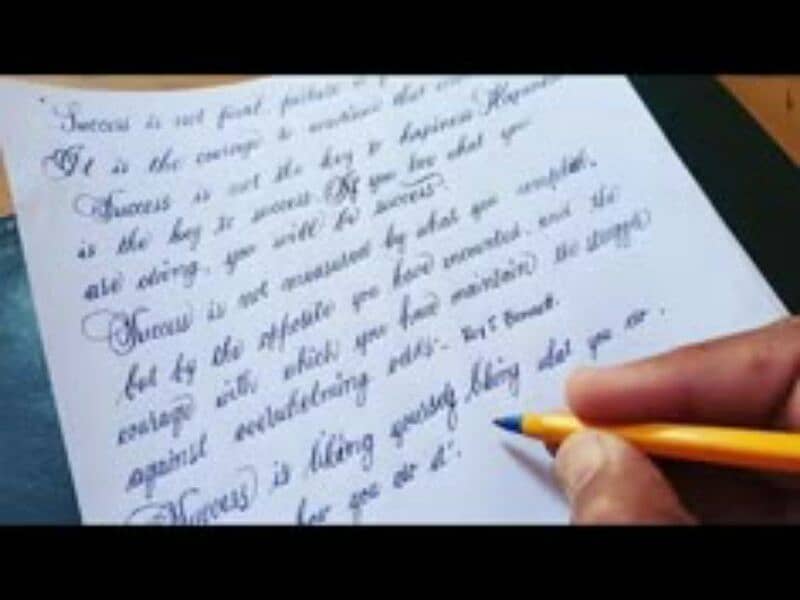 Success is not final, failure is
It is the courage to continue that
Success is not the key to happiness Happiness
is the key to success. If you love what you
are doing, you will be success".
Success is not measured by what you
but by the opposite you have the
courage with which you have maintain the struggle
against overwhelming odds".
Success is liking yourself liking what you do.
how you do it".